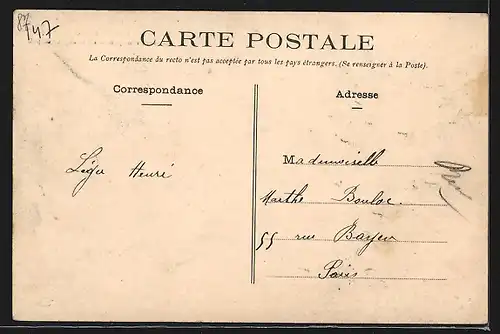 87
147
CARTE POSTALE
La Correspondance du recto n'est pas acceptée par tous les pays étrangers. (Se renseigner à la Poste).
Correspondance
Adresse
Léger Henri
Mademoiselle
Marthe Bouloc.
55 rue Bayen
Paris